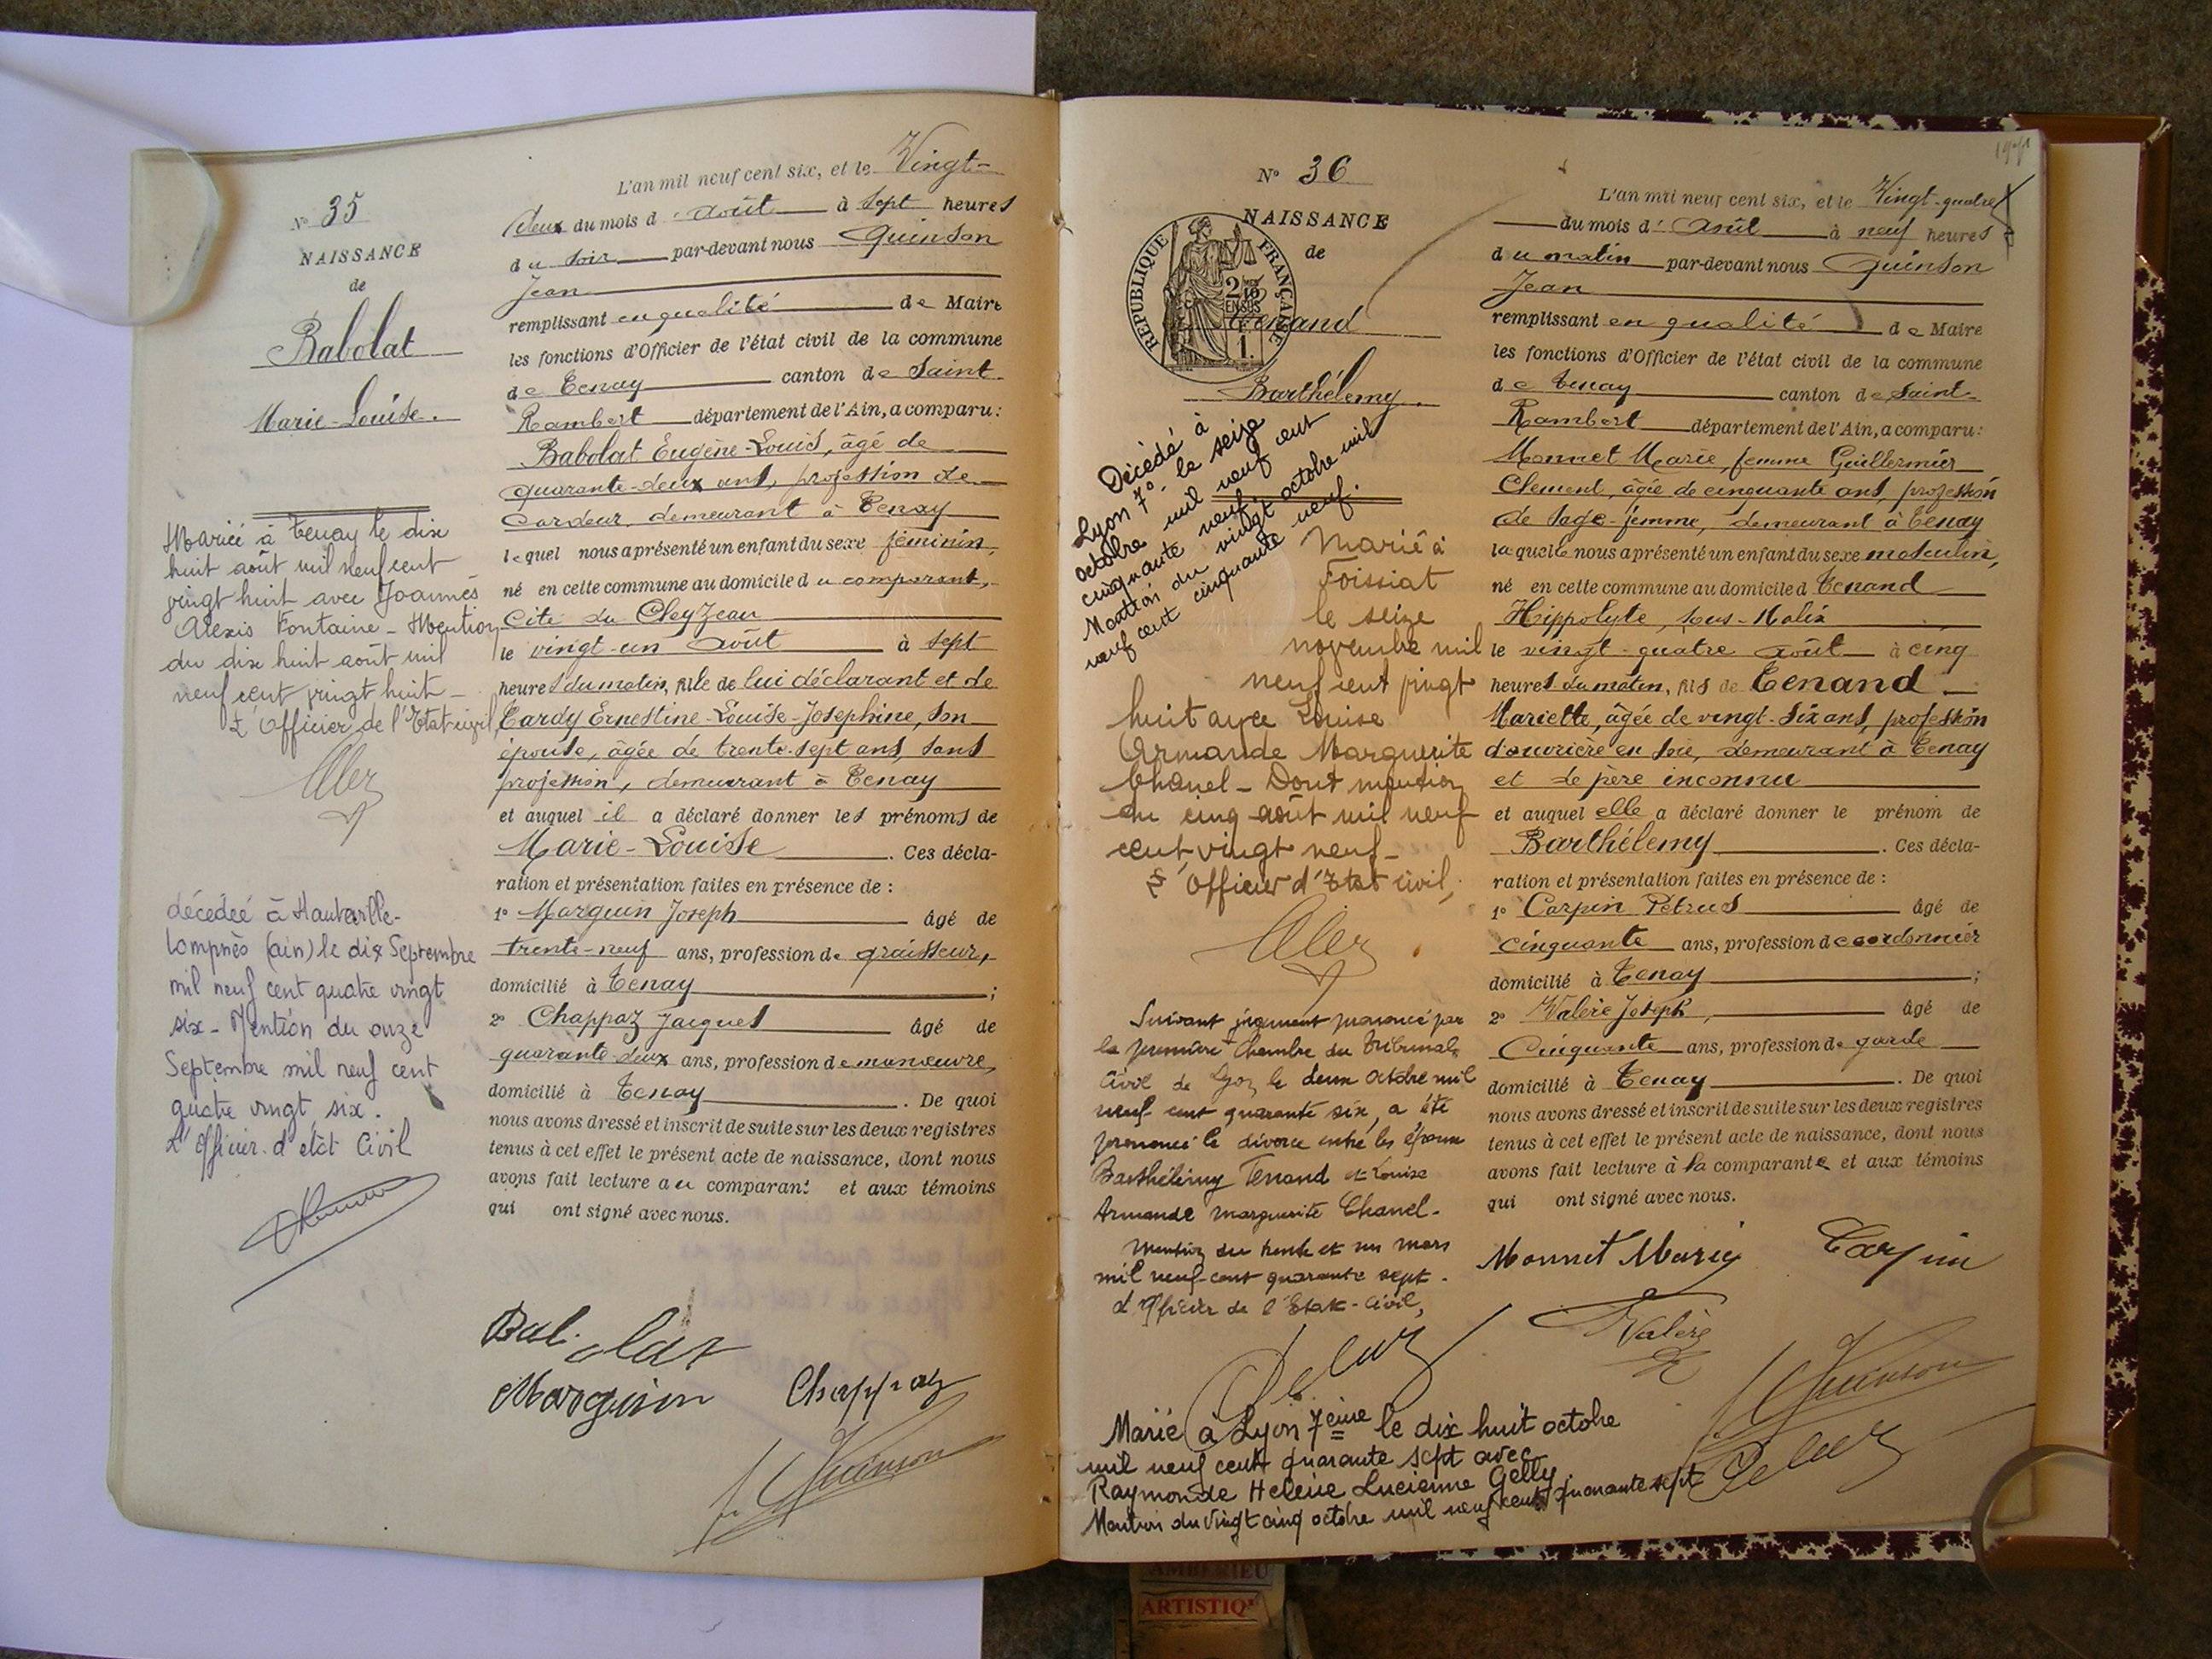 N° 35
NAISSANCE
de
Babolat
Marie-Louise.
Mariée à Tenay le dix
huit août mil neuf cent
vingt huit avec Joannès
Alexis Fontaine - Mention
du dix huit août mil
neuf cent vingt huit -
L'Officier de l'Etat civil,
décédée à Hauteville-
Lompnès (ain) le dix Septembre
mil neuf cent quatre vingt
six - Mention du onze
Septembre mil neuf cent
quatre vingt six.
L'Officier d'etat Civil
L'an mil neuf cent six, et le Vingt-
deux du mois d'août à sept heures
du soir par-devant nous Quinson
Jean
remplissant en qualité de Maire
les fonctions d'Officier de l'état civil de la commune
de Tenay canton de Saint-
Rambert département de l'Ain, a comparu:
Babolat Eugène-Louis, âgé de
quarante-deux ans, profession de
Cardeur, demeurant à Tenay
lequel nous a présenté un enfant du sexe féminin,
né en cette commune au domicile du comparant,
Cité du Cleyzeau
le vingt-un août à sept
heures du matin, fille de lui déclarant et de
Tardy Ernestine-Louise-Josephine, son
épouse, âgée de trente-sept ans, sans
profession, demeurant à Tenay
et auquel il a déclaré donner les prénoms de
Marie-Louise. Ces décla-
ration et présentation faites en présence de :
1° Marguin Joseph âgé de
trente-neuf ans, profession de graisseur,
domicilié à Tenay ;
2° Chappaz Jacques âgé de
quarante-deux ans, profession de manoeuvre,
domicilié à Tenay. De quoi
nous avons dressé et inscrit de suite sur les deux registres
tenus à cet effet le présent acte de naissance, dont nous
avons fait lecture au comparant et aux témoins
qui ont signé avec nous.
Babolat
Marguin Chappaz
J. Quinson
N° 36
NAISSANCE
de
RÉPUBLIQUE FRANÇAISE
Tenand
Barthélemy.
Décédé à
Lyon 7°. le seize
octobre mil neuf cent
cinquante neuf.
Mention du vingt octobre mil
neuf cent cinquante neuf.
Marié à
Foissiat
le seize
novembre mil
neuf cent vingt
huit avec Louise
Armande Marguerite
Chanel - Dont mention
du cinq août mil neuf
cent vingt neuf -
L'Officier d'Etat civil,
Suivant jugement prononcé par
la première Chambre du Tribunal
Civil de Lyon le deux Octobre mil
neuf cent quarante six, a été
prononcé le divorce entre les époux
Barthélémy Tenand et Louise
Armande Marguerite Chanel.
Mention du trente et un mars
mil neuf cent quarante sept.
L'Officier de l'Etat-Civil,
Marié à Lyon 7eme le dix huit octobre
mil neuf cent quarante sept avec
Raymonde Helène Lucienne Gelly.
Mention du vingt cinq octobre mil neuf cent quarante sept
L'an mil neuf cent six, et le Vingt-quatre
du mois d'août à neuf heures
du matin par-devant nous Quinson
Jean
remplissant en qualité de Maire
les fonctions d'Officier de l'état civil de la commune
de Tenay canton de Saint-
Rambert département de l'Ain, a comparu:
Monnet Marie, femme Guillermier
Clément, âgée de cinquante ans, profession
de Sage-femme, demeurant à Tenay
laquelle nous a présenté un enfant du sexe masculin,
né en cette commune au domicile d Tenand
Hippolyte, sous-Malix
le vingt-quatre août à cinq
heures du matin, fils de Tenand
Mariette, âgée de vingt-six ans, profession
d'ouvrière en soie, demeurant à Tenay
et de père inconnu
et auquel elle a déclaré donner le prénom de
Barthélemy. Ces décla-
ration et présentation faites en présence de :
1° Carpin Pétrus âgé de
Cinquante ans, profession de cordonnier
domicilié à Tenay ;
2° Valère Joseph, âgé de
Cinquante ans, profession de garde
domicilié à Tenay. De quoi
nous avons dressé et inscrit de suite sur les deux registres
tenus à cet effet le présent acte de naissance, dont nous
avons fait lecture à la comparante et aux témoins
qui ont signé avec nous.
Monnet Marie Carpin
Valère
J. Quinson
AMBERIEU
ARTISTIQ